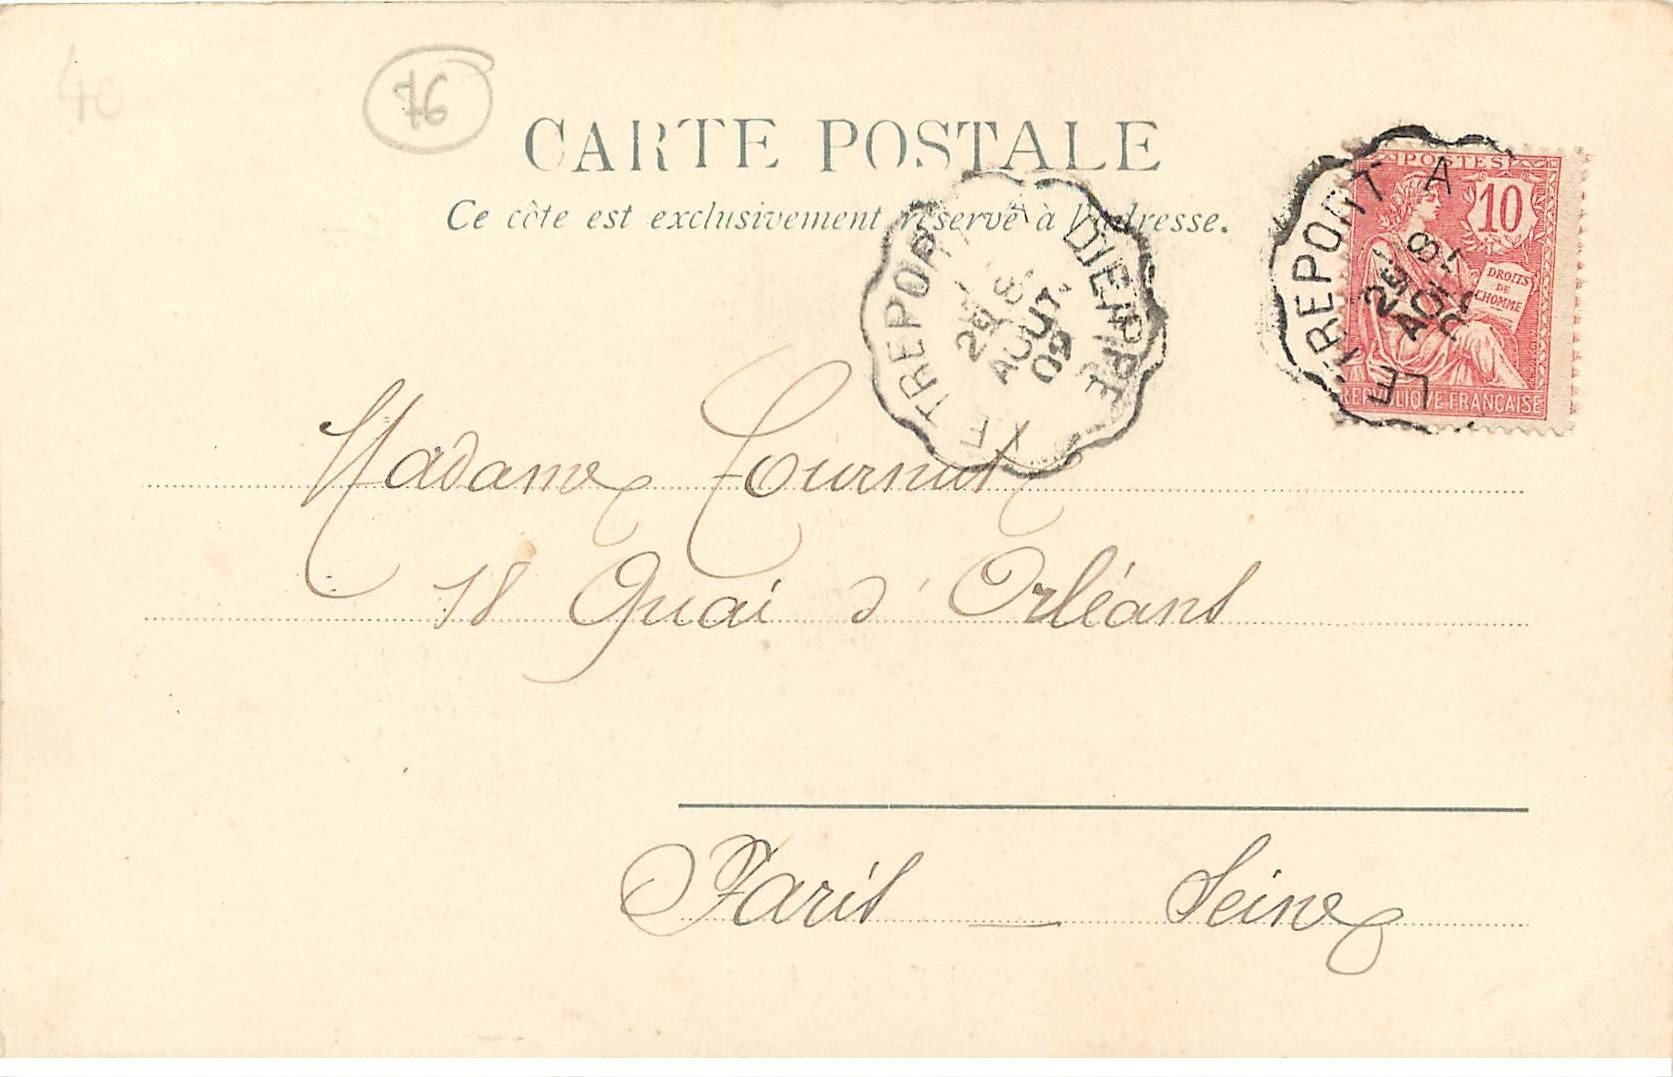 40
76
CARTE POSTALE
Ce côte est exclusivement réservé à l'adresse.
LE TREPORT A DIEPPE
2E
8
AOUT
02
LE TREPORT A
2E
8
POSTES
10
DROITS
DE
L'HOMME
REPUBLIQUE FRANÇAISE
Madame Tournut
18 Quai d'Orléans
Paris — Seine